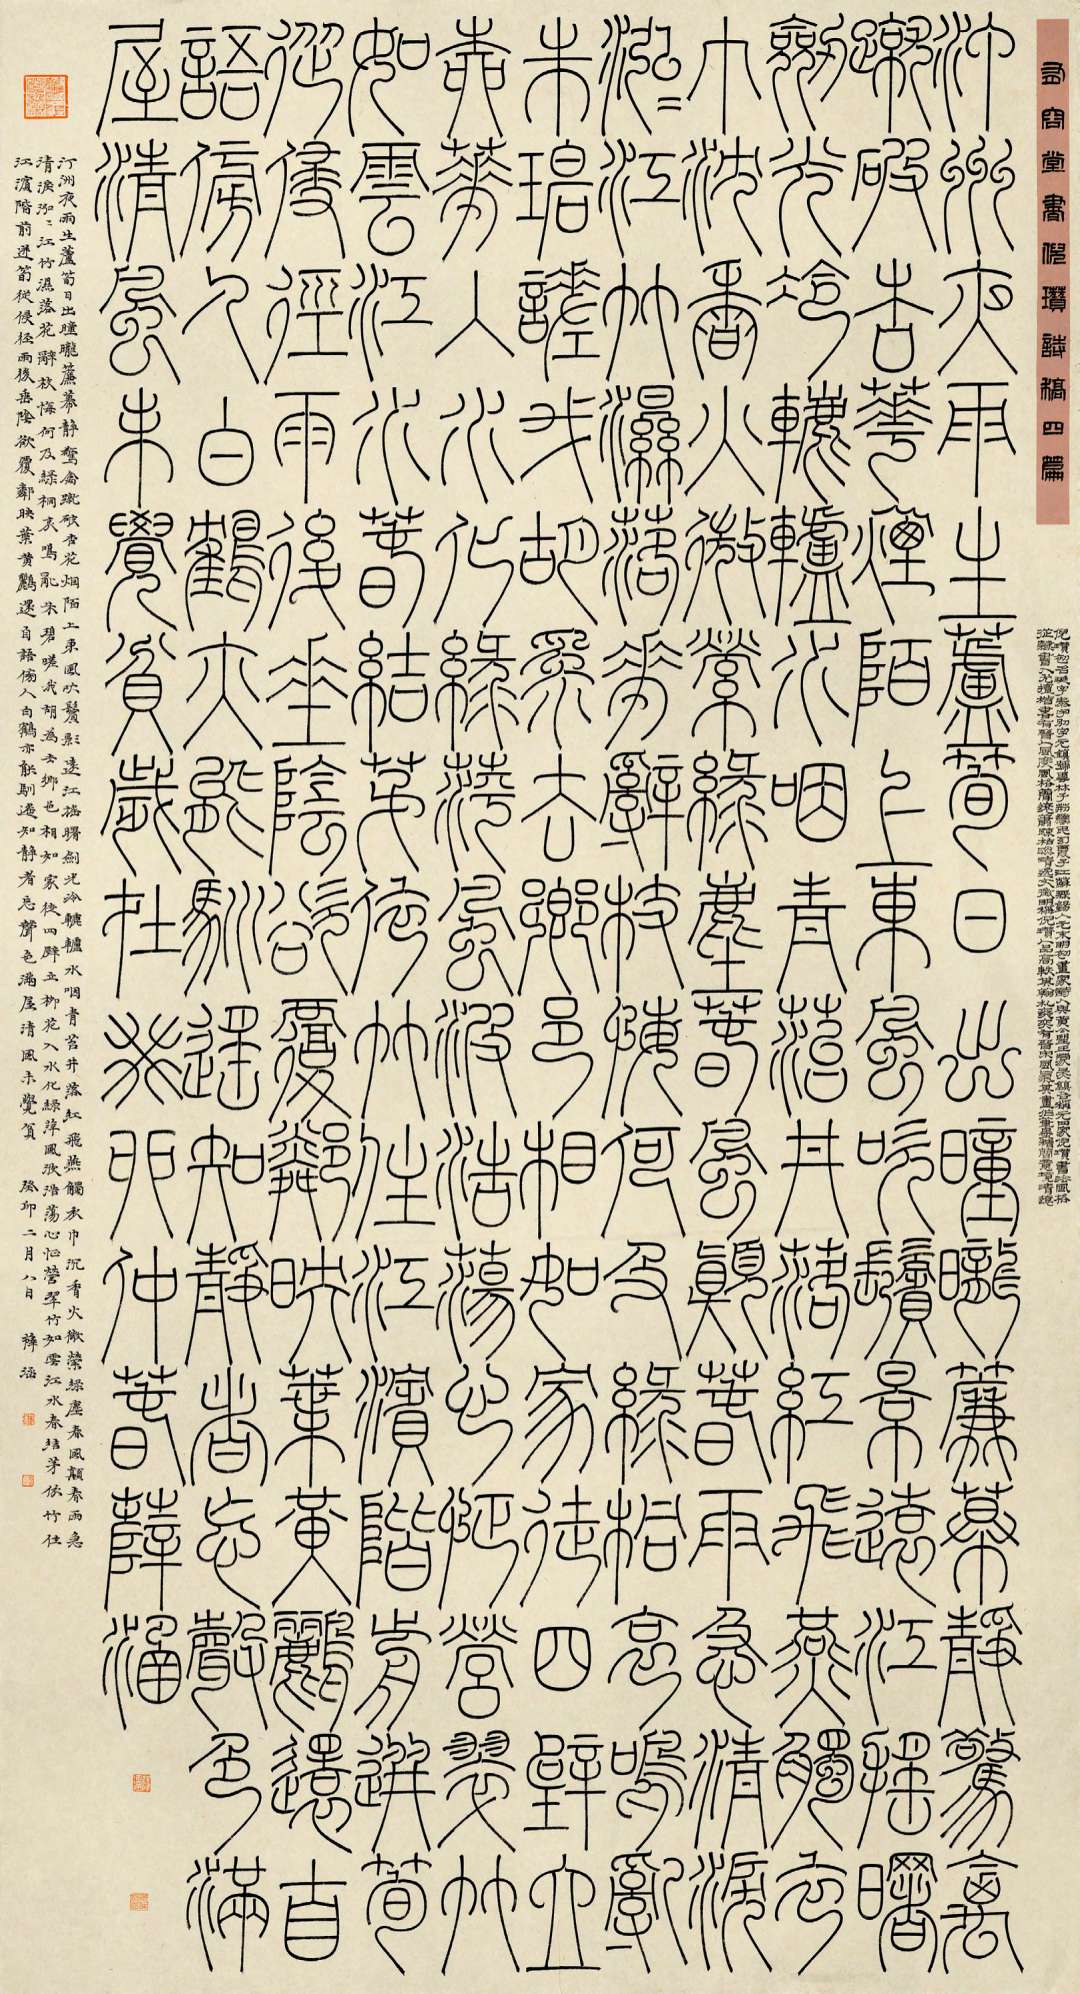 有容堂書倪瓚詩稿四篇
汀洲夜雨生蘆筍日出曈曨簾幕靜驚禽
蹴破杏花煙陌上東風吹鬢影遠江搖曙
劍光冷轆轤水咽青苔井落紅飛燕觸衣
巾沈香火微縈綠塵春風顛春雨急清淚
泓〻江竹濕落花辭枝悔何及綠桐哀鳴亂
朱碧嗟我胡爲去鄉邑相如家徒四壁立
柳花入水化綠萍風波浩蕩心怔營翠竹
如雲江水春結茅依竹住江濱階前迸筍
從侵徑雨後垂陰欲覆鄰映葉黃鸝還自
語傍人白鶴亦能馴遙知靜者忘聲色滿
屋清風未覺貧歲在癸卯仲春薛涵
汀洲夜雨生蘆筍日出曈曨簾幕靜驚禽蹴破杏花烟陌上東風吹鬢影遠江搖曙劍光冷轆轤水咽青苔井落紅飛燕觸衣巾沉香火微縈綠塵春風顛春雨急
清淚泓〻江竹濕落花辭枝悔何及綠桐哀鳴亂朱碧嗟我胡為去鄉邑相如家徒四壁立柳花入水化綠萍風波浩蕩心怔營翠竹如雲江水春結茅依竹住
江濱階前迸筍從侵徑雨後垂陰欲覆鄰映葉黃鸝還自語傍人白鶴亦能馴遙知靜者忘聲色滿屋清風未覺貧 癸卯二月八日 薛涵